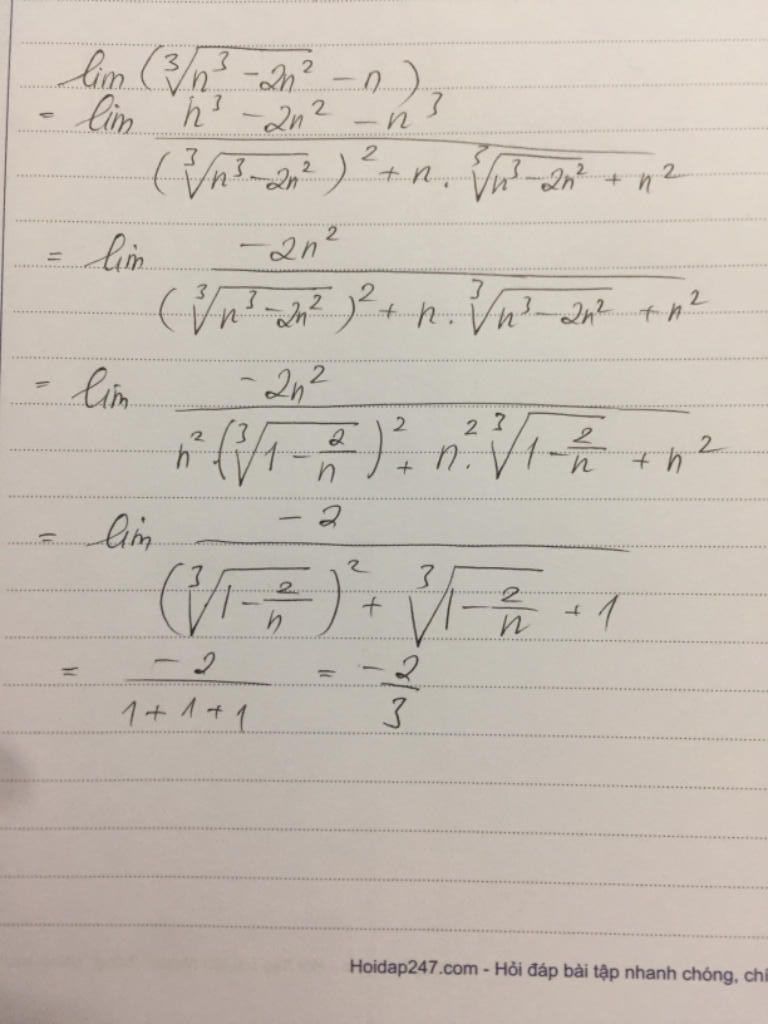 lim (∛(n³ - 2n²) - n)
= lim (n³ - 2n² - n³) / ((∛(n³ - 2n²))² + n . ∛(n³ - 2n²) + n²)
= lim (-2n²) / ((∛(n³ - 2n²))² + n . ∛(n³ - 2n²) + n²)
= lim (-2n²) / (n² . (∛(1 - 2/n))² + n² . ∛(1 - 2/n) + n²)
= lim (-2) / ((∛(1 - 2/n))² + ∛(1 - 2/n) + 1)
= (-2) / (1 + 1 + 1) = (-2) / 3
Hoidap247.com - Hỏi đáp bài tập nhanh chóng, chí